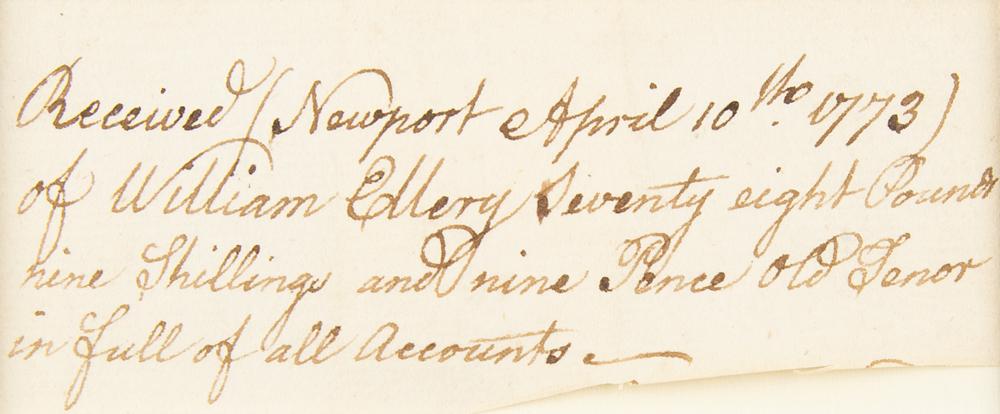 Received (Newport April 10th. 1773)
of William Ellery Seventy eight Pounds
nine Shillings and nine Pence Old Tenor
in full of all Accounts.